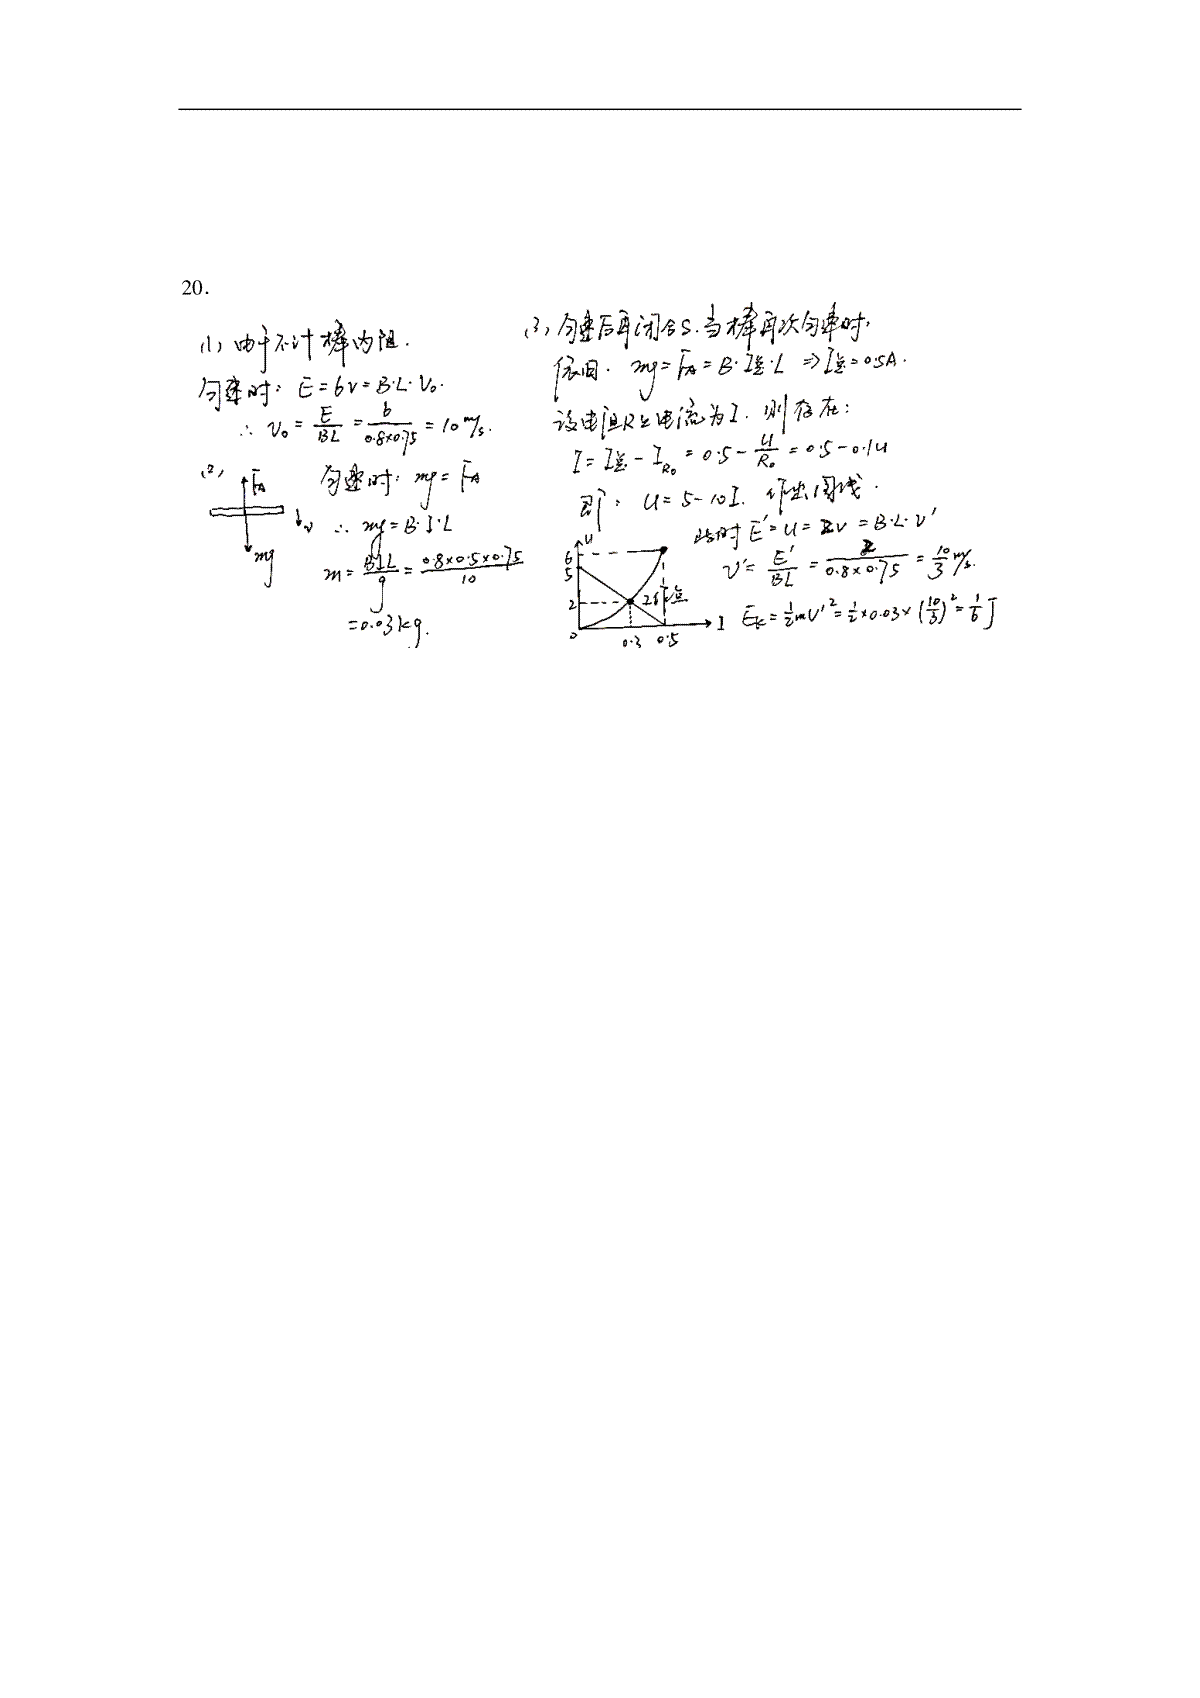 20.
(1) 由于不计棒内阻.
匀速时: E=6V=B·L·V₀.
∴ V₀=E/BL=6/0.8×0.75=10m/s.
(2) 匀速时: mg=F_A
F_A
v
mg
∴ mg=B·I·L
m=BIL/g=0.8×0.5×0.75/10
=0.03kg.
(3) 匀速后再闭合S.当棒再次匀速时,
依旧. mg=F_A=B·I总·L ⇒I总=0.5A.
设电阻R上电流为I. 则存在:
I=I总-I_R₀=0.5-U/R₀=0.5-0.1U
即: U=5-10I. 作出图线.
此时E'=U=2V=B·L·V'
V'=E'/BL=2/0.8×0.75=10/3 m/s.
E_K=½mV'²=½×0.03×(10/3)²=1/6 J
U
6
5
2
工作点
0
0.3
0.5
I